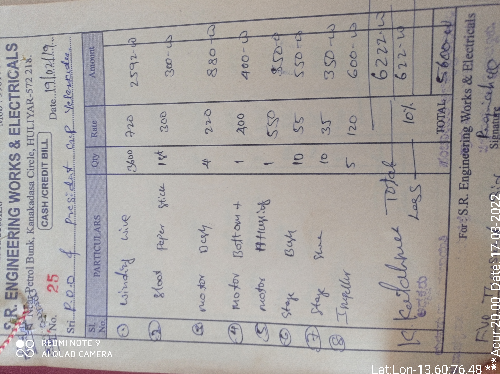 S.R. ENGINEERING WORKS & ELECTRICALS
Petrol Bunk, Kanakadasa Circle, HULIYAR-572 218.
No. 25
CASH /CREDIT BILL
Date 19/02/19
Sri P.D.O & President G.P Yelanadu
Sl. No. PARTICULARS Qty Rate Amount
1 Winding Wire 3600 720 2592-00
2 Paper Stick 1set 300 300-00
3 Motor Bush 4 220 880-00
4 Motor Bottom 1 400 400-00
5 Motor 1 550 550-00
6 Stage Bush 10 55 550-00
7 Stage 10 35 350-00
8 Impeller 5 120 600-00
Total 6222-00
Less 10% 622-00
TOTAL 5600-00
For : S.R. Engineering Works & Electricals
Signature
REDMI NOTE 9
AI QUAD CAMERA
LatLon-13.60:76.48 ***Acur-20.00 Date-17-03-2022